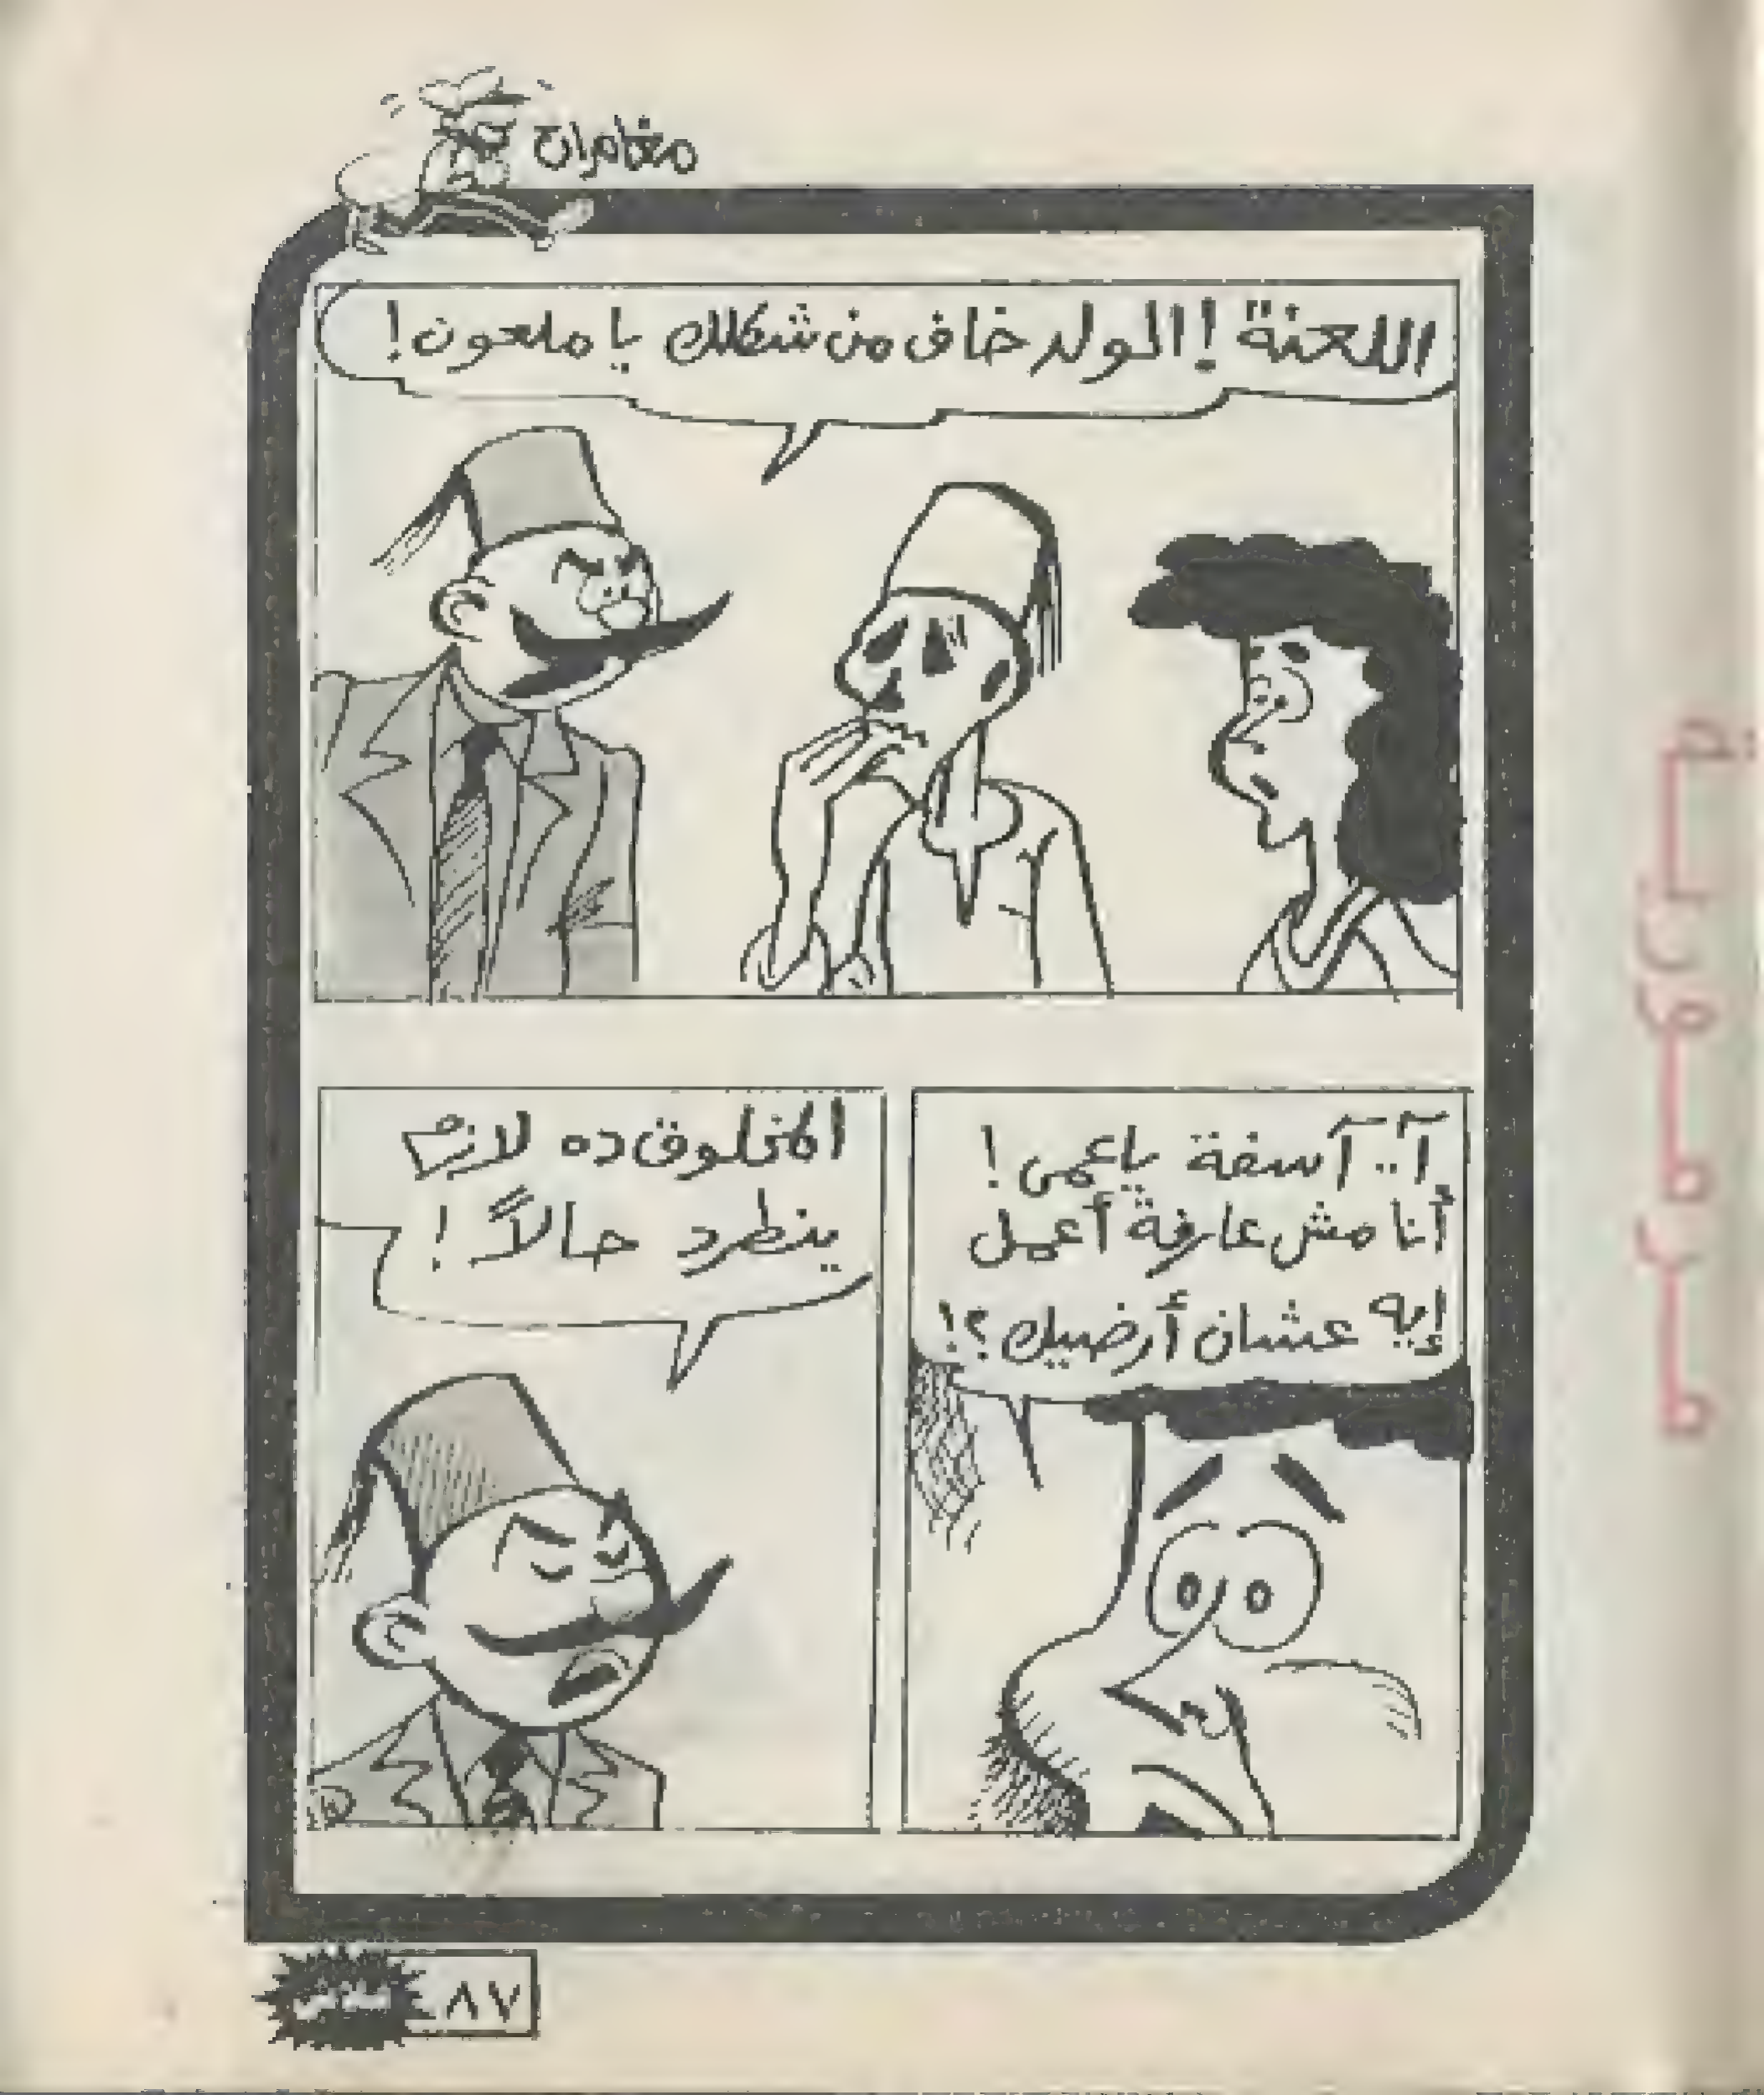 مغامرات
اللعنة! الولد خاف من شكلك يا ملعون!
آ.. آسفة ياعمى!
أنا مش عارفة أعمل
إيه عشان أرضيك؟!
المخلوق ده لازم
ينطرد حالاً!
٨٧